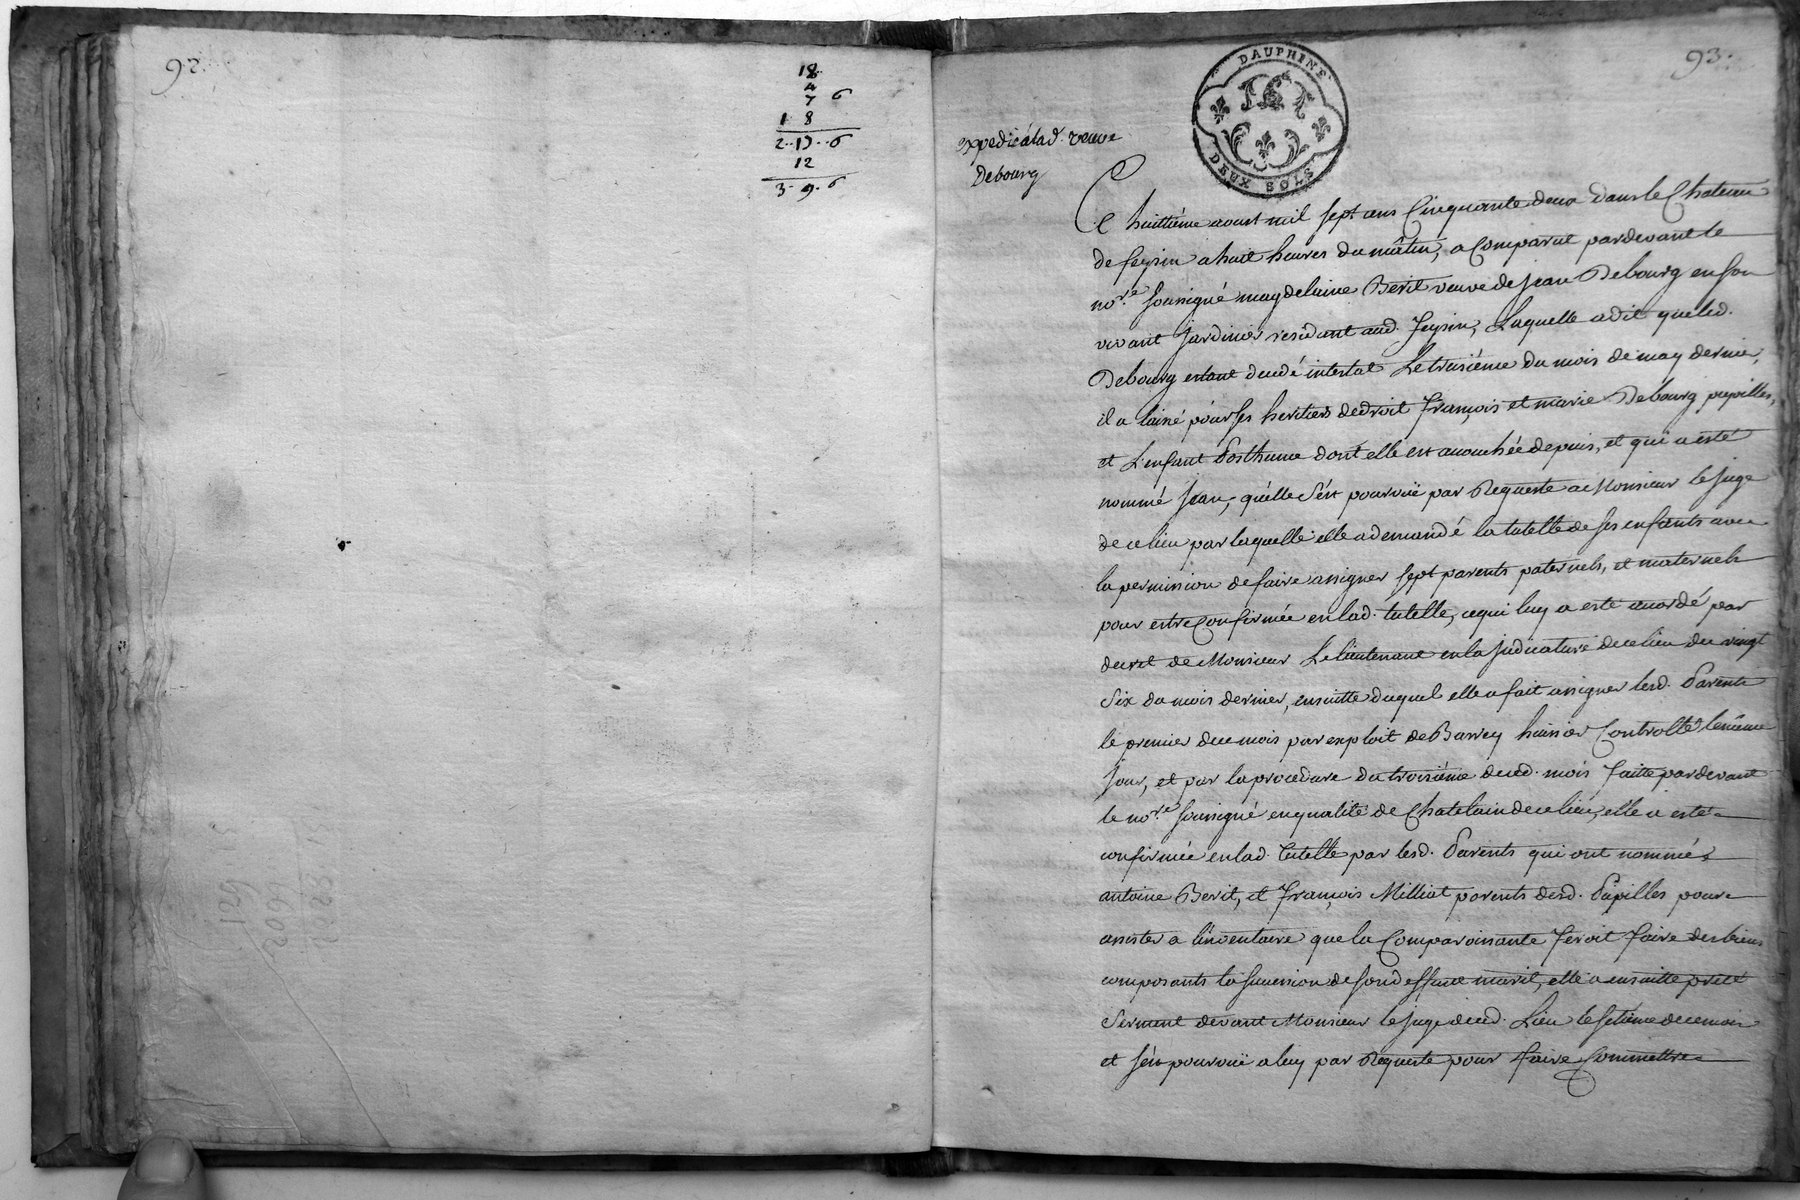 92.
18
4
7 6
1 8
2..17..6
12
3. 9. 6
93.
DAUPHINE
DEUX SOLS
expedié a lad. veuve
Debourg
Ce huitiéme aoust mil sept cens Cinquante deux dans le Chateau
de feysin a huit heures du mâtin, a Comparue pardevant le
nore. soussigné magdelaine Berit veuve de jean Debourg en son
vivant jardinier residant aud. feysin, Laquelle a dit que led.
Debourg estant decedé intestat Le troisiéme du mois de may dernier,
il a laissé pour ses heritiers de droit françois et marie Debourg pupilles,
et L'enfant Posthume dont elle est accouchée depuis, et qui a esté
nommé jean, qu'elle s'est pourvüe par Requeste a Monsieur le juge
de ce lieu par laquelle elle a demandé la tutelle de ses enfants avec
la permission de faire assigner sept parents paternels, et maternels
pour estre Confirmée en lad. tutelle, ce qui luy a esté accordé par
decret de Monsieur Le lieutenant en la judicature de ce lieu du vingt
six du mois dernier, ensuitte duquel elle a fait assigner lesd. Parents
le premier de ce mois par exploit de Barrey huissier Controllé le même
jour, et par la procedure du troisiéme de ced. mois faitte pardevant
le nore. soussigné en qualité de Chatelain de ce lieu, elle a esté
confirmée en lad. tutelle par lesd. Parents qui ont nommés
antoine Berit, et françois Milliat parents desd. Pupilles pour
assister a l'inventaire que la Comparoissante feroit faire des biens
composants la succession de son deffunt marit, elle a ensuitte preté
serment devant Monsieur le juge de ced. Lieu le setiéme de ce mois
et s'est pourvüe a luy par Requeste pour faire Commettre